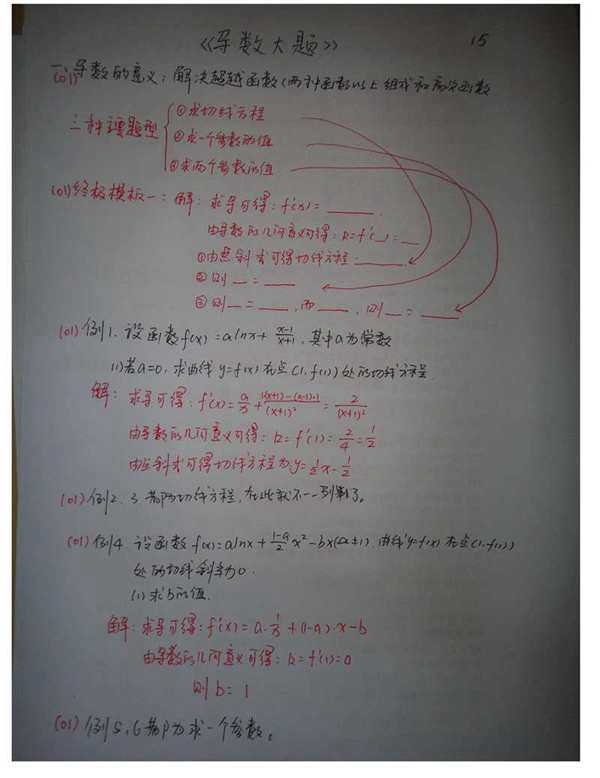 《导数大题》 15
一、导数的意义：解决超越函数(两种函数以上组成和高次函数
(01)
三种主要题型
①求切线方程
②求一个参数的值
③求两个参数的值
(01)终极模板一：解：求导可得：f'(x)=____.
由导数的几何意义可得：k=f'(_)=__
①由点斜式可得切线方程：____
②则__=____
③则__=____,而____,则__=____
(01)例1.设函数f(x)=alnx+(x-1)/(x+1),其中a为常数
(1)若a=0,求曲线y=f(x)在点(1,f(1))处的切线方程
解：求导可得：f'(x)=a/x+((x+1)-(x-1)·1)/(x+1)²=2/(x+1)²
由导数的几何意义可得：k=f'(1)=2/4=1/2
由点斜式可得切线方程为:y=1/2x-1/2
(01)例2.3都为切线方程,在此就不一一列举了。
(01)例4 设函数f(x)=alnx+(1-a)/2 x²-bx(a≠1).曲线y=f(x)在点(1,f(1))
处的切线斜率为0.
(1)求b的值.
解：求导可得：f'(x)=a·1/x+(1-a)·x-b
由导数的几何意义可得：k=f'(1)=0
则b=1
(01)例5,6都为求一个参数。